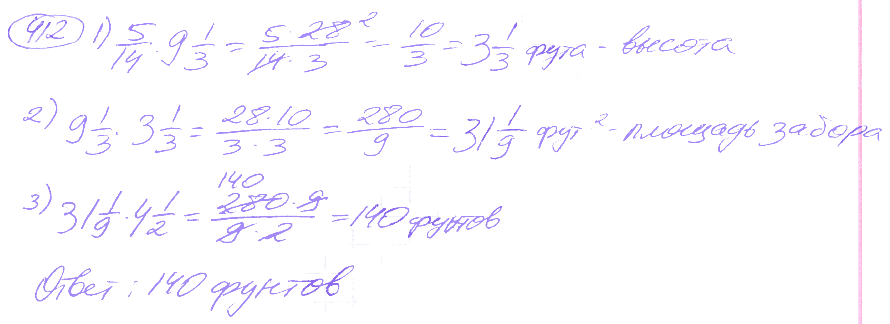 412 1) 5/14 · 9 1/3 = 5·28²/14·3 = 10/3 = 3 1/3 фута - высота
2) 9 1/3 · 3 1/3 = 28·10/3·3 = 280/9 = 31 1/9 фут² - площадь забора
3) 31 1/9 · 4 1/2 = 140 280·9/9·2 = 140 фунтов
Ответ: 140 фунтов